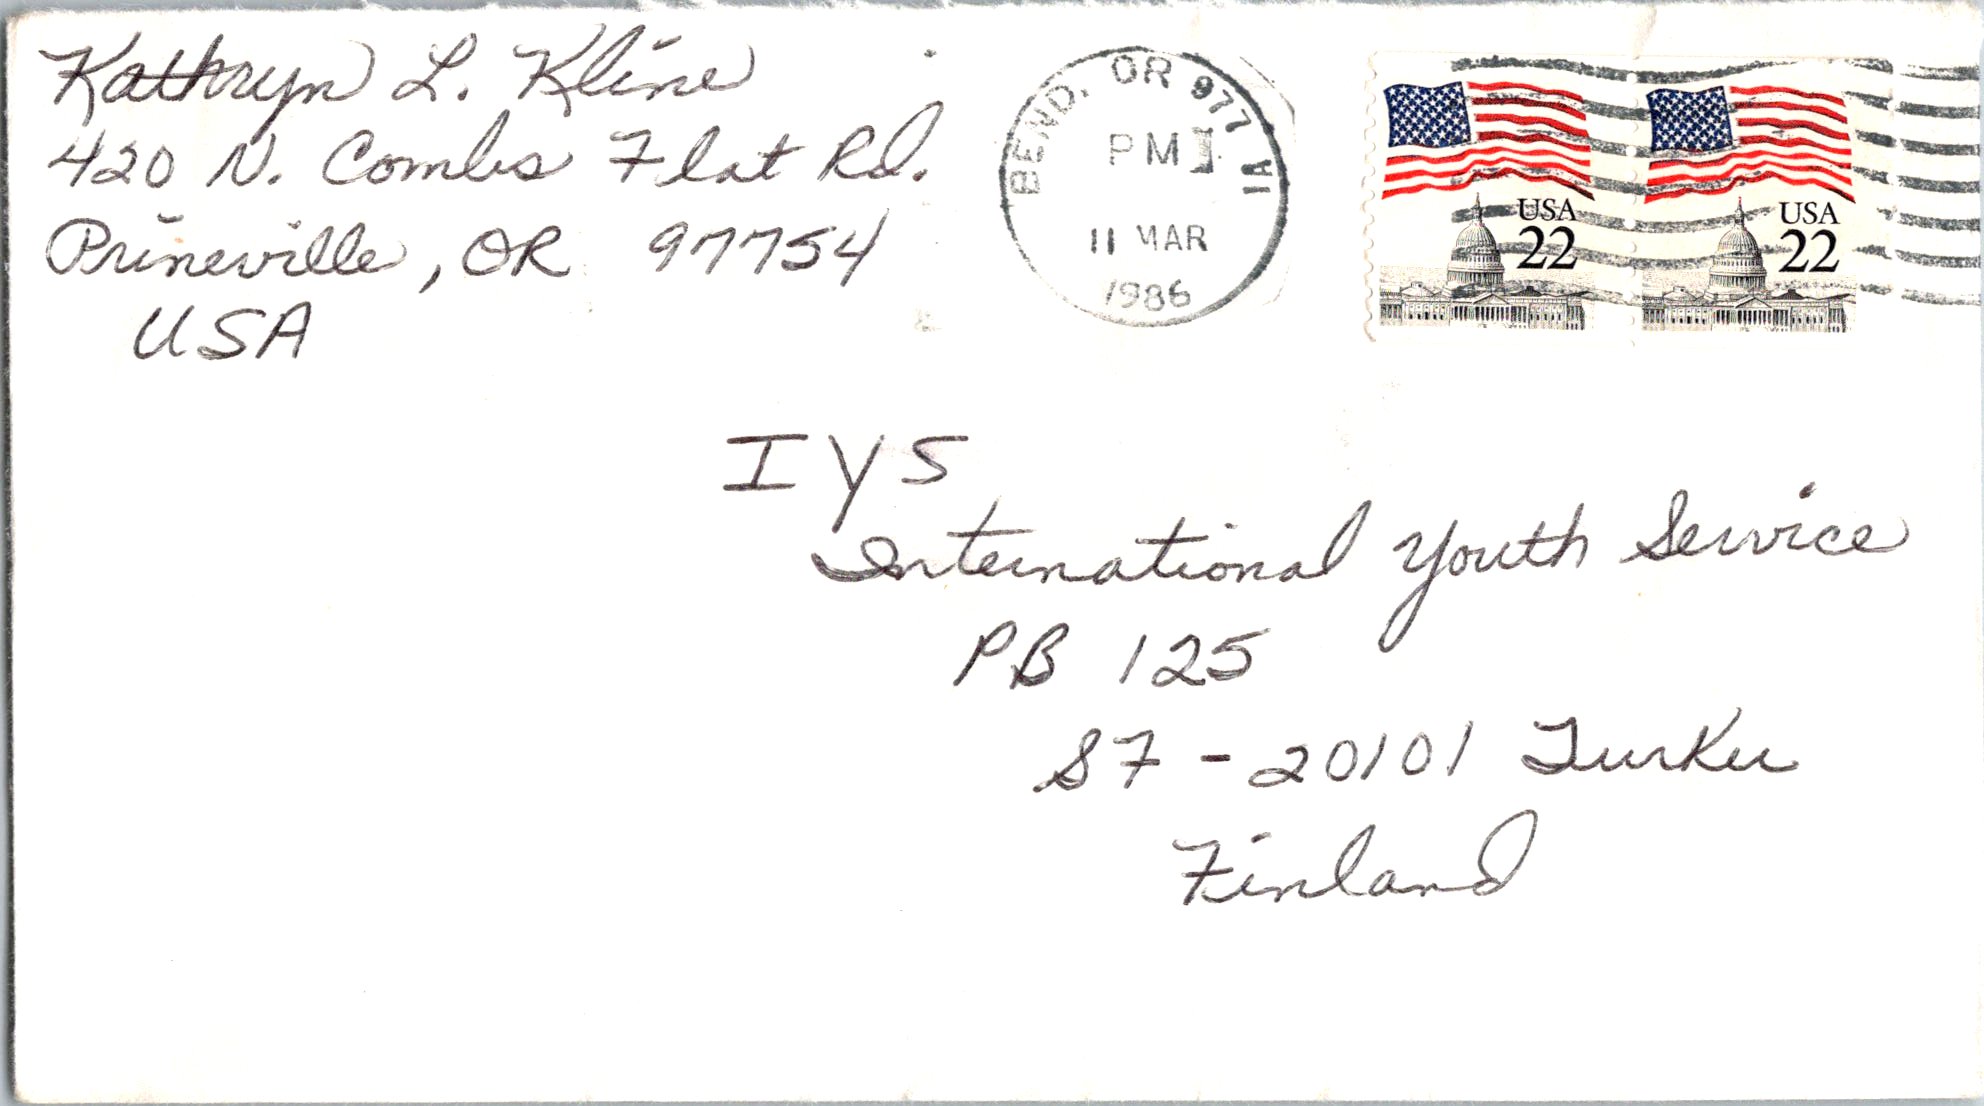 Kathryn L. Kline
420 N. Combs Flat Rd.
Prineville, OR 97754
USA
BEND, OR 977
PM
11 MAR
1986
USA
22
USA
22
IYS
International Youth Service
PB 125
SF - 20101 Turku
Finland